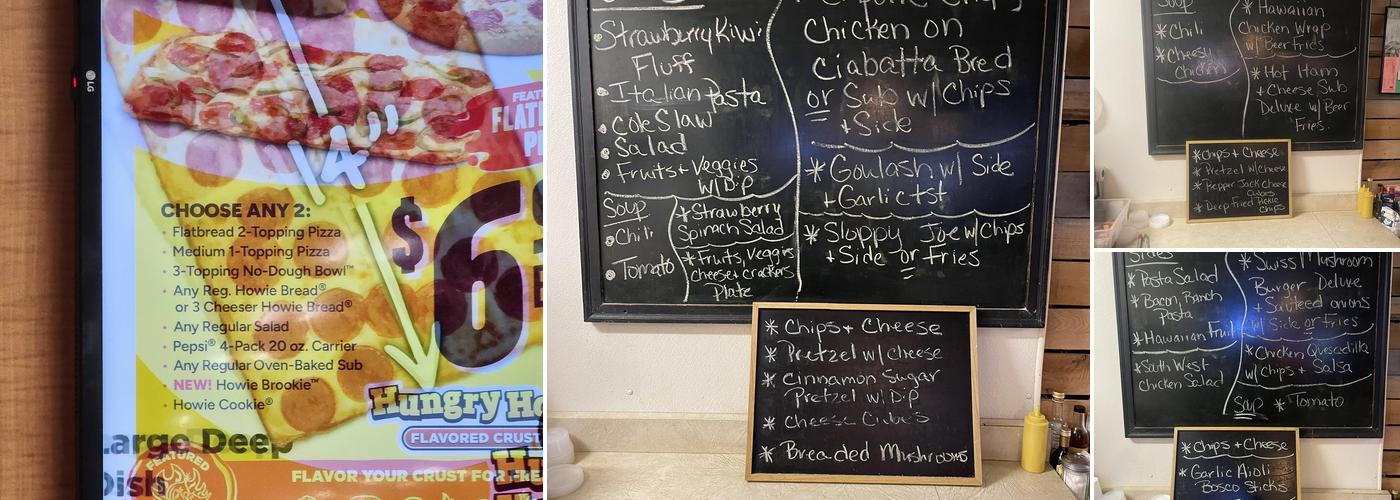 LG
14"
FEAT
FLAT
PI
CHOOSE ANY 2:
• Flatbread 2-Topping Pizza
• Medium 1-Topping Pizza
• 3-Topping No-Dough Bowl™
• Any Reg. Howie Bread®
or 3 Cheeser Howie Bread®
• Any Regular Salad
• Pepsi® 4-Pack 20 oz. Carrier
• Any Regular Oven-Baked Sub
• NEW! Howie Brookie™
• Howie Cookie®
$6
Hungry Ho
FLAVORED CRUST
Large Deep
Dish
FEATURED
FLAVOR YOUR CRUST FOR FRE
• Strawberry Kiwi
Fluff
• Italian Pasta
• Cole Slaw
• Salad
• Fruits + Veggies
W/ Dip
Soup
• Chili
• Tomato
* Strawberry
Spinach Salad
* Fruits, Veggies
cheese + crackers
Plate
Chicken on
Ciabatta Bred
or Sub w/ Chips
+ Side
* Goulash w/ Side
+ Garlic tst
* Sloppy Joe w/ Chips
+ Side or fries
* Chips + Cheese
* Pretzel w/ cheese
* Cinnamon Sugar
Pretzel W/ Dip
* Cheese Cubes
* Breaded Mushrooms
Soup
* Chili
* Cheesy
Chicken
* Hawaiian
Chicken Wrap
w/ Beer Fries
* Hot Ham
+ Cheese Sub
Deluxe w/ Beer
Fries.
* Chips + Cheese
* Pretzel w/ Cheese
* Pepper Jack Cheese
Cubes
* Deep Fried Pickle
Chips
Sides
* Pasta Salad
* Bacon, Ranch
Pasta
* Hawaiian Fruit
* South West
Chicken Salad
* Swiss Mushroom
Burger Deluxe
+ Sauteed onions
w/ Side or fries
* Chicken Quesadilla
w/ Chips + Salsa
Soup * Tomato
* Chips + Cheese
* Garlic Aioli
Bosco Sticks